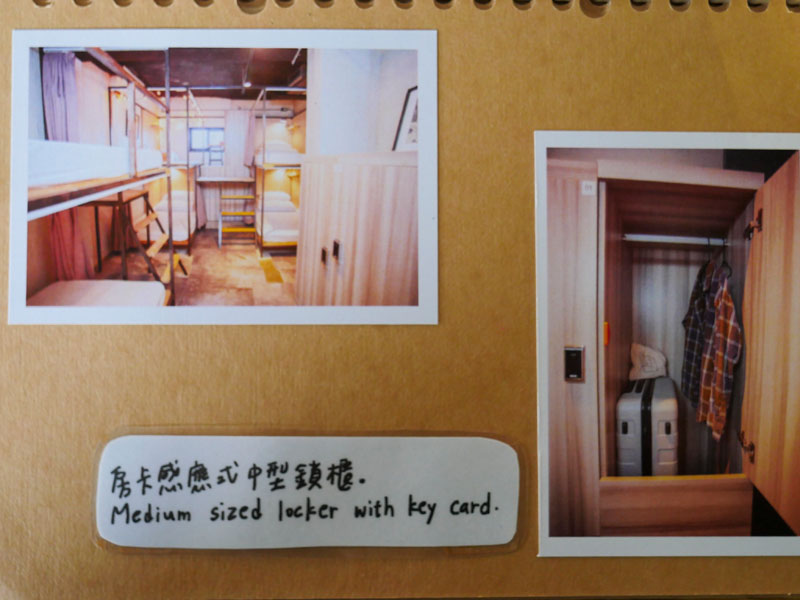 房卡感應式中型鎖櫃。
Medium sized locker with key card.